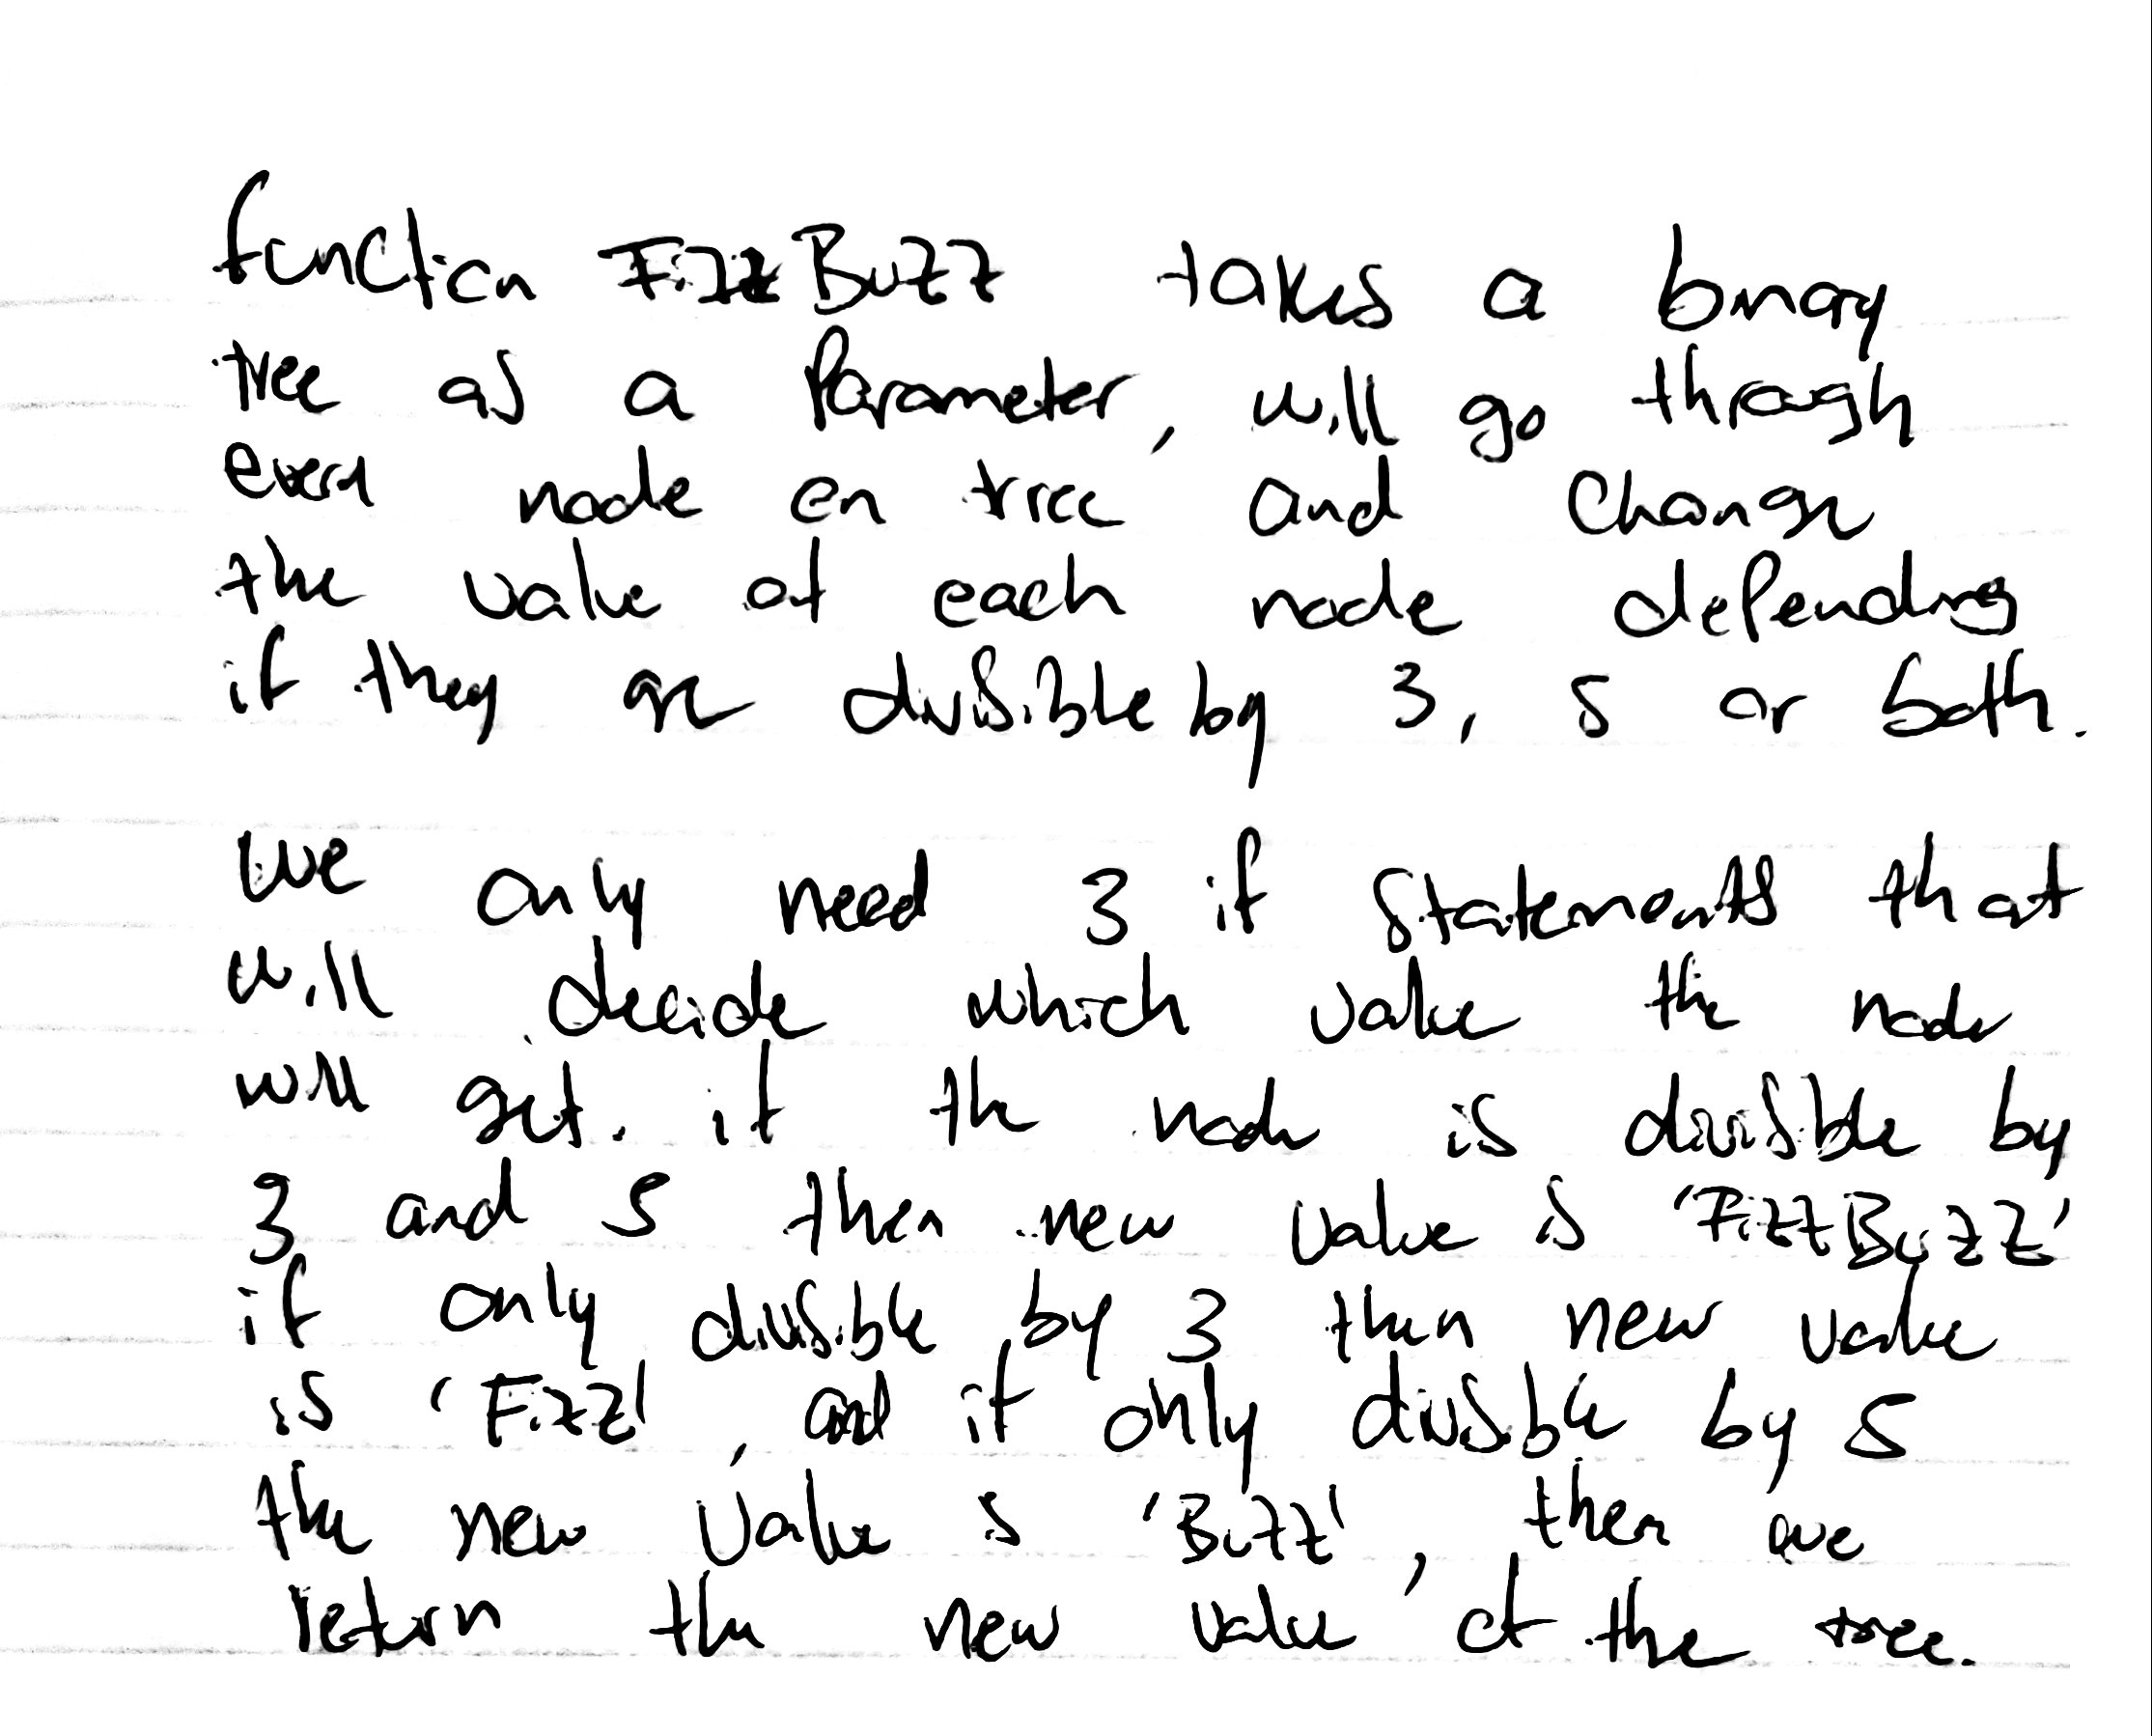 function FizzBuzz takes a binary
tree as a Parameter, will go through
every node on tree and change
the value of each node depending
if they are divisible by 3, 5 or both.
We only need 3 if statements that
will decide which value the node
will get. if the node is divisible by
3 and 5 then new value is 'FizzBuzz'
if only divisible by 3 then new value
is 'Fizz', and if only divisible by 5
the new value is 'Buzz', then we
return the new value of the tree.